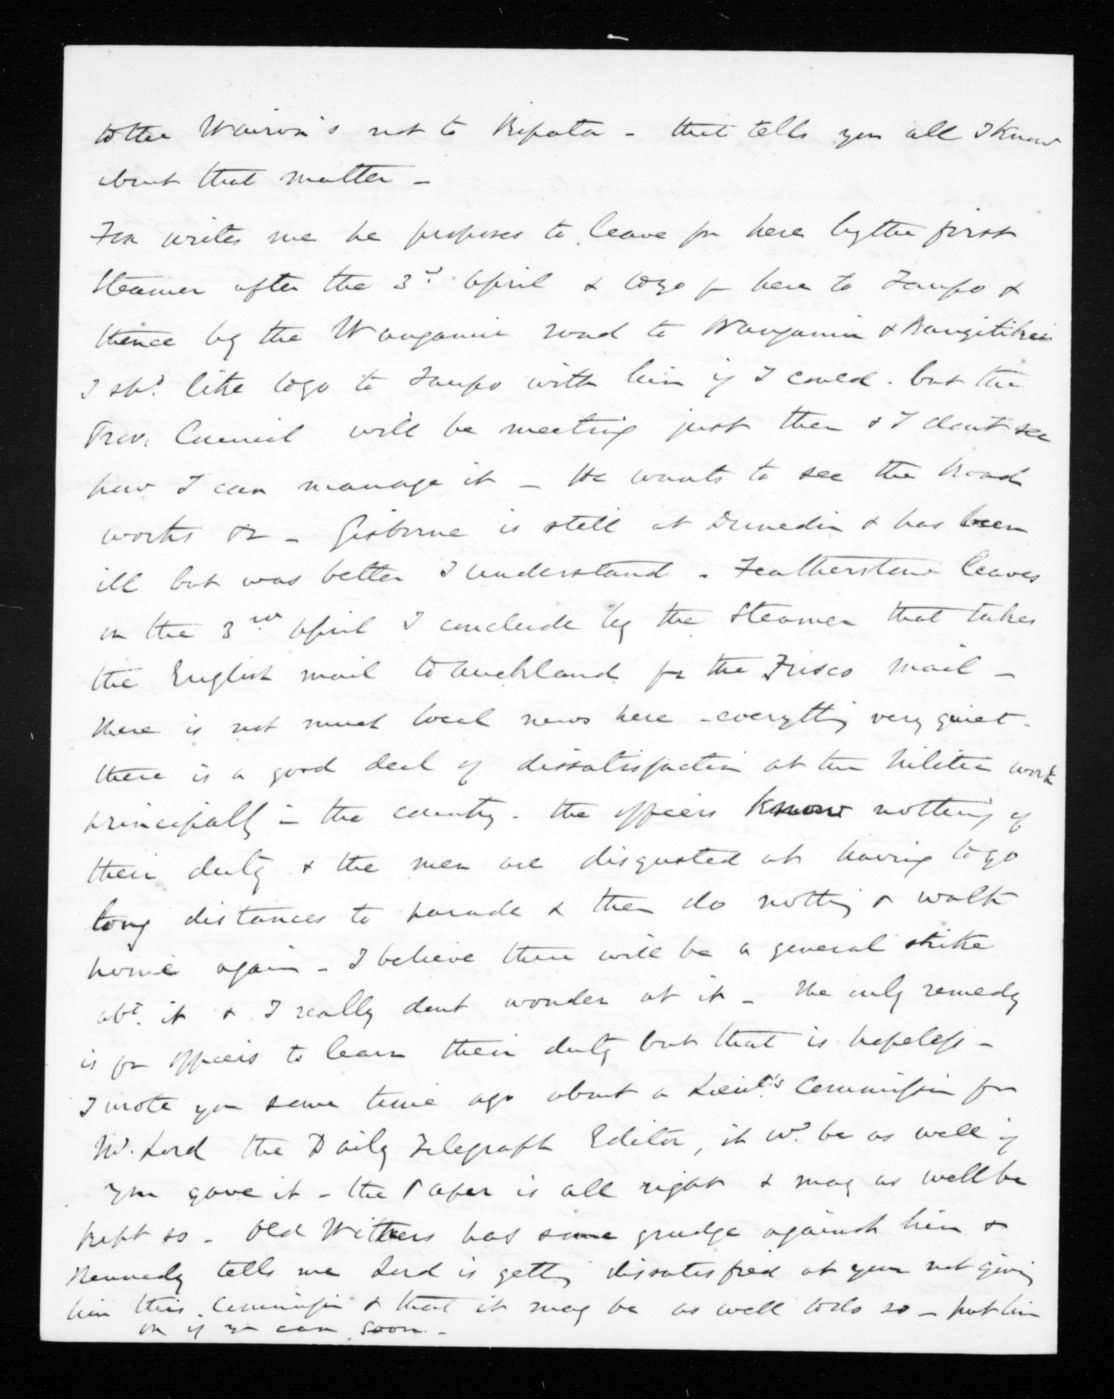 to the Wairoa's not to Ropata - that tells you all I know
about that matter -
Fox writes me he proposes to leave for here by the first
Steamer after the 3rd April & to go fm here to Taupo &
thence by the Wanganui road to Wanganui & Rangitikei
I shd. like to go to Taupo with him if I could. but the
Prov. Council will be meeting just then & I dont see
how I can manage it - He wants to see the Road
works &c - Gisborne is still at Dunedin & has been
ill but was better I understand - Featherston leaves
on the 3rd April I conclude by the Steamer that takes
the English mail to Auckland for the Frisco Mail -
there is not much local news here - everything very quiet -
there is a good deal of dissatisfaction at the Militia work
principally in the country. the officers know nothing of
their duty & the men are disgusted at having to go
long distances to parade & then do nothing & walk
home again - I believe there will be a general strike
abt. it & I really dont wonder at it - The only remedy
is for officers to learn their duty but that is hopeless -
I wrote you some time ago about a Lieut's Commission for
Mr. Lord the Daily Telegraph Editor, it wd. be as well if
you gave it - the Paper is all right & may as well be
kept so - Old Withers has some grudge against him &
Kennedy tells me Lord is getting dissatisfied at your not giving
him this Commission & that it may be as well to do so - put him
on if you can soon -